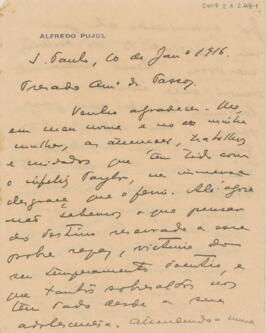 ALFREDO PUJOL
S. Paulo, 10 de Janº 1916.
Prezado Amº. Dr. Passos,
Venho agradecer-lhe,
em meu nome e no de minha
mulher, as attenções, trabalhos
e cuidados que tem tido com
o infeliz Paulo, na immensa
desgraça que o feriu. Até agora
não sabemos o que pensar
do destino reservado a esse
pobre rapaz, victima do
seu temperamento doentio, e
que tantos sobresaltos nos
tem dado desde a sua
adolescencia. Attendendo a